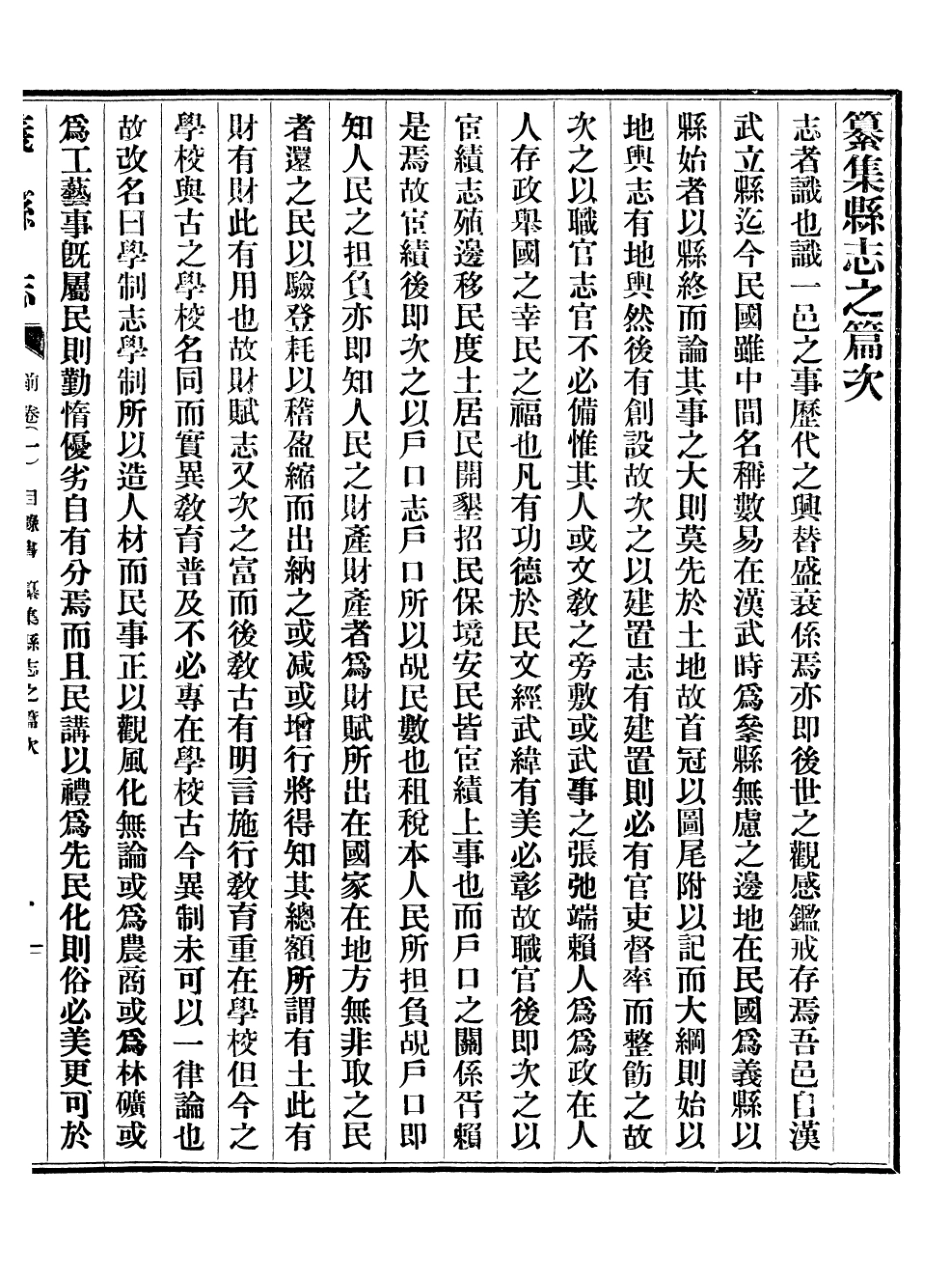 纂集縣志之篇次
志者識也識一邑之事歷代之興替盛衰係焉亦即後世之觀感鑑戒存焉吾邑自漢
武立縣迄今民國雖中間名稱數易在漢武時爲絫縣無慮之邊地在民國爲義縣以
縣始者以縣終而論其事之大則莫先於土地故首冠以圖尾附以記而大綱則始以
地輿志有地輿然後有創設故次之以建置志有建置則必有官吏督率而整飭之故
次之以職官志官不必備惟其人或文敎之旁敷或武事之張弛端賴人爲爲政在人
人存政舉國之幸民之福也凡有功德於民文經武緯有美必彰故職官後即次之以
宦績志殖邊移民度土居民開墾招民保境安民皆宦績上事也而戶口之關係胥賴
是焉故宦績後即次之以戶口志戶口所以覘民數也租稅本人民所担負覘戶口即
知人民之担負亦即知人民之財產財產者爲財賦所出在國家在地方無非取之民
者還之民以驗登耗以稽盈縮而出納之或減或增行將得知其總額所謂有土此有
財有財此有用也故財賦志又次之富而後敎古有明言施行敎育重在學校但今之
學校與古之學校名同而實異敎育普及不必專在學校古今異制未可以一律論也
故改名曰學制志學制所以造人材而民事正以觀風化無論或爲農商或爲林礦或
爲工藝事旣屬民則勤惰優劣自有分焉而且民講以禮爲先民化則俗必美更可於
義縣志 前卷(一) 目錄書 纂集縣志之篇次 二